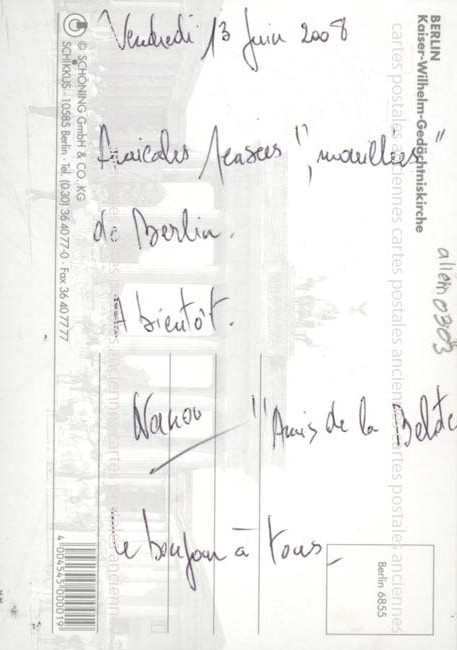 Vendredi 13 Juin 2008
Amicales pensées "mouillées"
de Berlin.
A bientôt.
Nanou
"Amis de la Belote
Le bonjour à tous
BERLIN
Kaiser-Wilhelm-Gedächtniskirche
allem0303
cartes postales anciennes cartes postales anciennes cartes postales anciennes
© SCHÖNING GmbH & CO. KG
SCHIKKUS · 10585 Berlin · Tel. (030) 36 40 77-0 · Fax 36 40 77 77
4 004545 000019
Berlin 6855